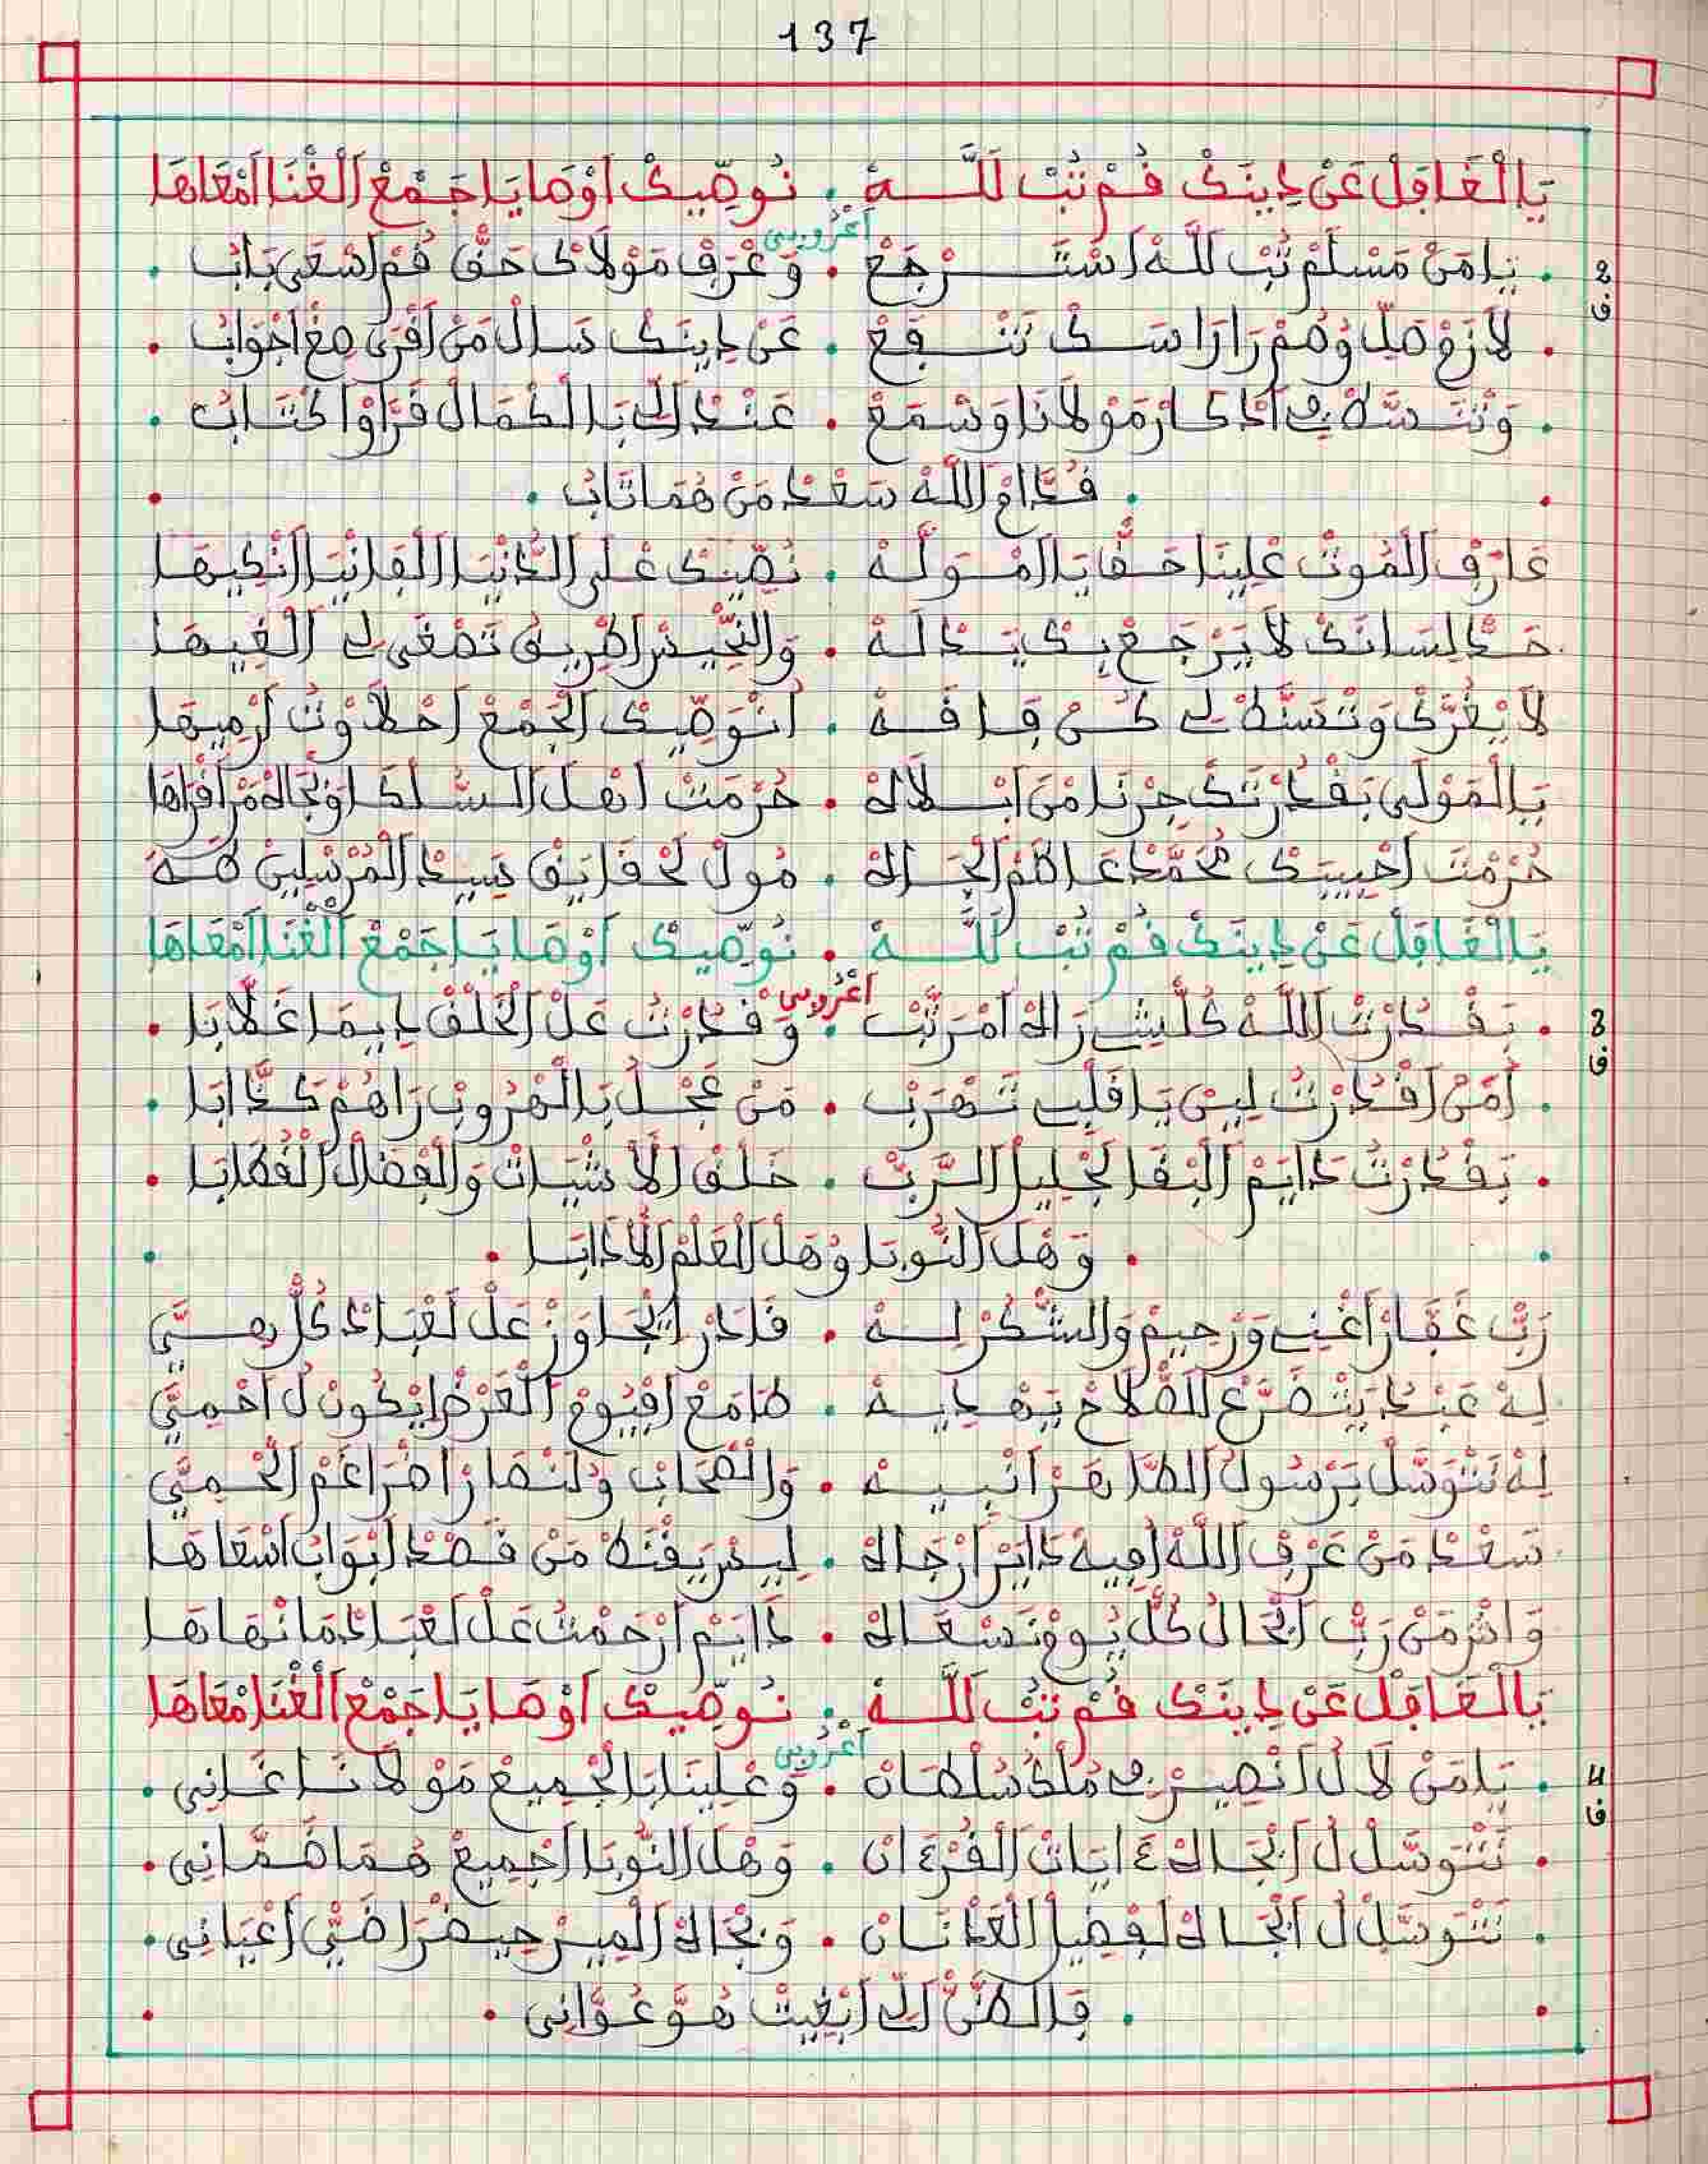 137
يَا الْغَافِلْ عَنْ دِينَكْ قُمْ تُبْ لَلَّـهْ . نُوصِّيكْ اَوْصَايَا جَمْعْ اَلْغْنَا اَمْعَاهَا
اَعْرُوبِي
2 ف . يَامَنْ مَسْلَمْ تُبْ للَّهْ اَسْتَـرْجَعْ . وَعْرَفْ مَوْلَاكْ حَقّْ قُمْ اَسْعَى بَابُ .
. لَازَمْ صَلِّ وُصُمْ رَارَاسَـكْ تَنْـفَعْ . عَنْ دِينَـكْ سَالْ مَنْ اَقْرَى صِغْ اَجْوَابُ .
. وَنْتَـسَّطْ فِي اَدْكَارْ مَوْلَانَا وَسْمَعْ . عَنْدْ اَلِّي بَالْكْمَالْ قَرَّاوْ اَكْتَـابُ .
. قُدَّامْ اَللَّهْ سَعْدْ مَنْ هُمَا تَابُ .
عَارَفْ اَلْمُوتْ عْلِينَا حَقّْ يَا اَلْمْـوَلَّـهْ . نُصِّيكْ عْلَى اَلدَّنْيَا اَلْفَانْيَا اَنْكِيهَا
حَدْ لِسَانَكْ لَا يَرْجَعْ بِـكْ يَـدْلَـهْ . وَالنّْحِيسْ اَطْرِيـقُ تَصْغَى لِي اَلْغِيهَـا
لَا يْغُرَّكْ وَنْتَسَّطْ لِي كُـنْ قَـافَـهْ . اَنْوَصِّيـكْ اَلْجَمْعْ اَحْلَاوْتُ اَرْمِيهَا
يَا اَلْمَوْلَى بَقْدُرْتَكْ جِرْنَا مْنَ اَبْـلَاهْ . حُرْمَتْ اَهْـلَ اَلـسُّـلْكَا وُبْجَاهْ مَنْ اَقْرَاهَا
حُرْمْتْ اَحْبِيبَـكْ مُحَمَّدْ عَاظَمْ اَلْجَـاهْ . مُولْ لَحْقَايَقْ سِيـدْ اَلْمُرْسْلِينْ طَـهَ
يَا الْغَافِلْ عَنْ دِينَكْ قُمْ تُبْ لَلَّـهْ . نُوصِّيكْ اَوْصَايَا جَمْعْ اَلْغْنَا اَمْعَاهَا
اَعْرُوبِي
3 ف . بَقْـدُرْتْ اَللَّـهْ كُلّْشِي رَاهْ اَمْرَتَّبْ . وَقْدُرْتُ عَلْ اَلْخَلْقْ دِيمَا غَلَّابَا .
. اَمَنْ اَقْدُرْتُ لِيـنْ يَا قَلْبِي تَـهْرَبْ . مَنْ عْجَـلْ بَالْهْرُوبْ رَاهُمْ كَدَّابَا .
. بَقْدُرْتُ دَايَمْ اَلْبْقَا لَجْلِيلْ اَلـرَّبّْ . خَلَـقَ اَلَاشْيَـاتْ وَالْفِضَالْ اَلْقُطَابَا .
. وَهْـلَ اَلنُّوبَا وُهْلَ اَلْعَلْمْ اَلَادَابَـا .
رَبّْ غَفَّـارْ اَغْنِي وَرْحِيمْ وَالشُّكُرْ لِـهْ . قَادَرْ اَيْجَـاوَزْ عَلْ لَعْبَـادْ كُلّْ سِـيَّ
لِـهْ عَبْـدْ يَتْضَرَّعْ اَلصّْلَاحْ يَهْـدِيـهْ . طَامَعْ اَفْيُومْ اَلْعَرْضْ اَيْكُونْ لُ اَحْمِيَّ
لِهْ نَتْوَسَّلْ بَرْسُولُ اَلطَّـاهَرْ اَنْبِيـهْ . وَالصّْحَابْ وَلَنْصَارْ اَضْرَاغَمْ اَلْحْـمِيَّ
سَعْـدْ مَنْ عْرَفْ اَللَّهْ اَفِيهْ دَايَرْ اَرْجَـاهْ . لِيـسْ يَقْنَطْ مَنْ قَـصْدْ اَبْوَابْ اَسْعَاهَا
وَاشْ مَنْ رَبّْ اَبْحَالُ كُلّْ يُـومْ نَسْعَـاهْ . دَايَمْ اَرْحَمْتُ عَلْ لَعْبَـادْ مَانْهَاهَا
يَالْغَافْلْ عَنْ دِينَكْ قُمْ تُبْ لَلَّـهْ . نُـوصِّيـكْ اَوْصَايَا جَمْعْ اَلْغْنَا مْعَاهَا
اَعْرُوبِي
4 ف . يَامَنْ لَا لُ اَنْصِيـرْ فِي مُلْكُ سُلْطَـانْ . وَعْلِينَا بَالْجْمِيعْ مَوْلَانَـا غَـانِي .
. نَتْوَسَّلْ لُ اَبْجَـاهْ ءَايَاتْ اَلْقُرْءَانْ . وَهْلَ اَلنُّوبَا اَجْمِيعْ هُـمَا ضُمَّانِي .
. نَتْوَسَّلْ لُ اَبْجَـاهْ لَفْضِيلْ اَلْعَدْنَـانْ . وَبْجَاهْ اَلْمِيـرْ حِيـضْرَا ضَيّْ اَعْيَانِي .
. فَالظَّنّْ اَلِّي اَبْغِيتْ هُـوَّ عُـوَّانِي .